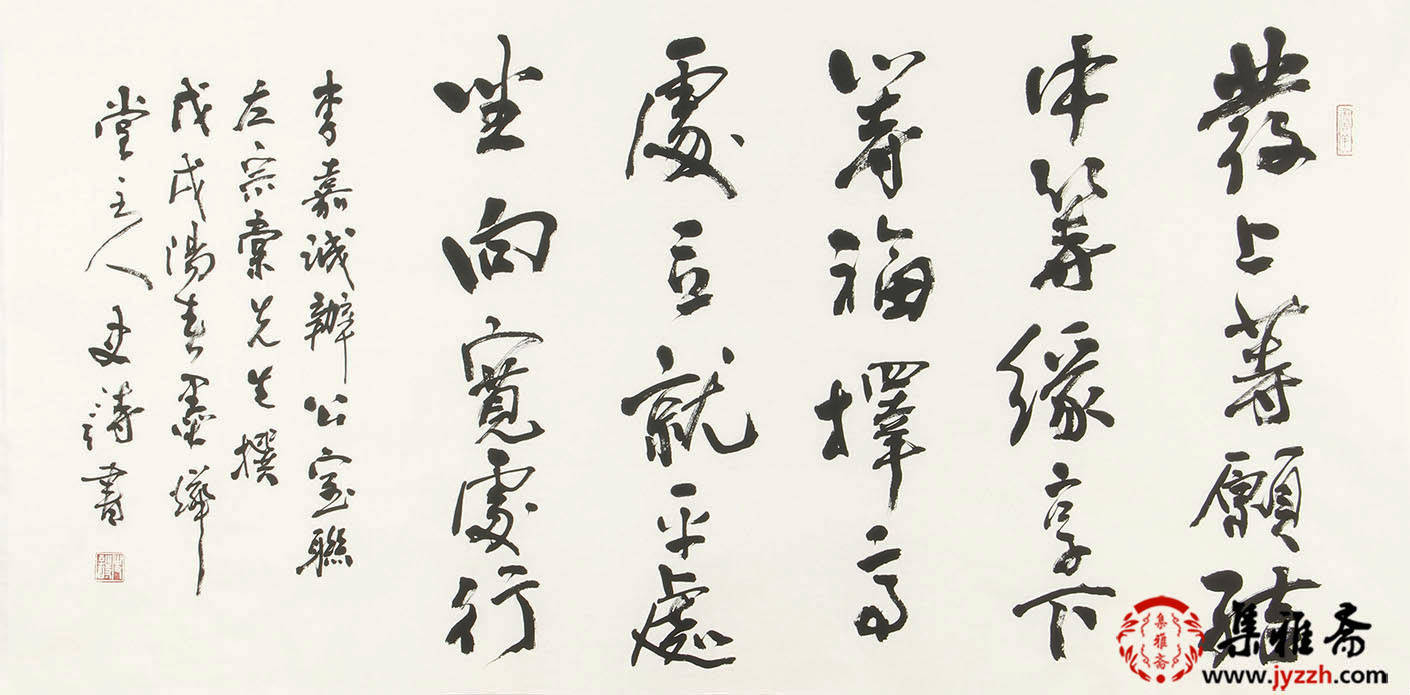 發上等願結
中等緣享下
等福擇高
處立就平處
坐向寬處行
李嘉誠辦公室聯
左宗棠先生撰
戊戌陽春墨
堂主人史書
集雅斋
集雅斋
www.jyzzh.com